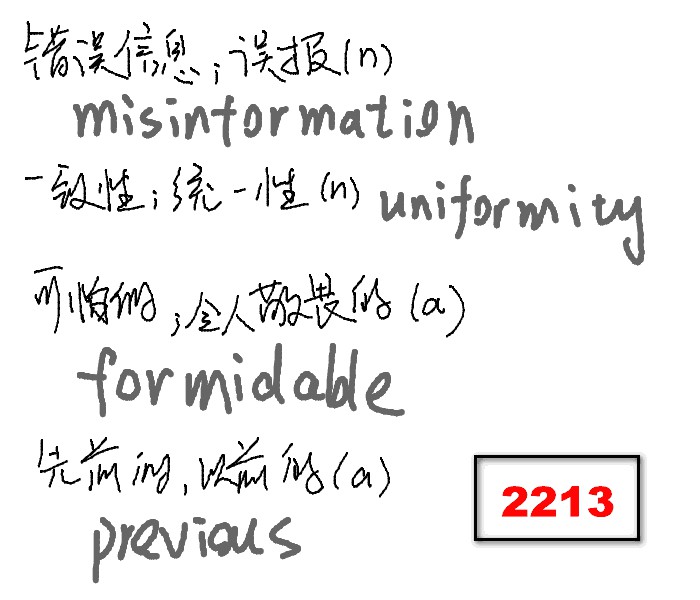 错误信息；误报(n)
misinformation
一致性；统一性(n) uniformity
可怕的；令人敬畏的(a)
formidable
先前的，以前的(a)
previous
2213